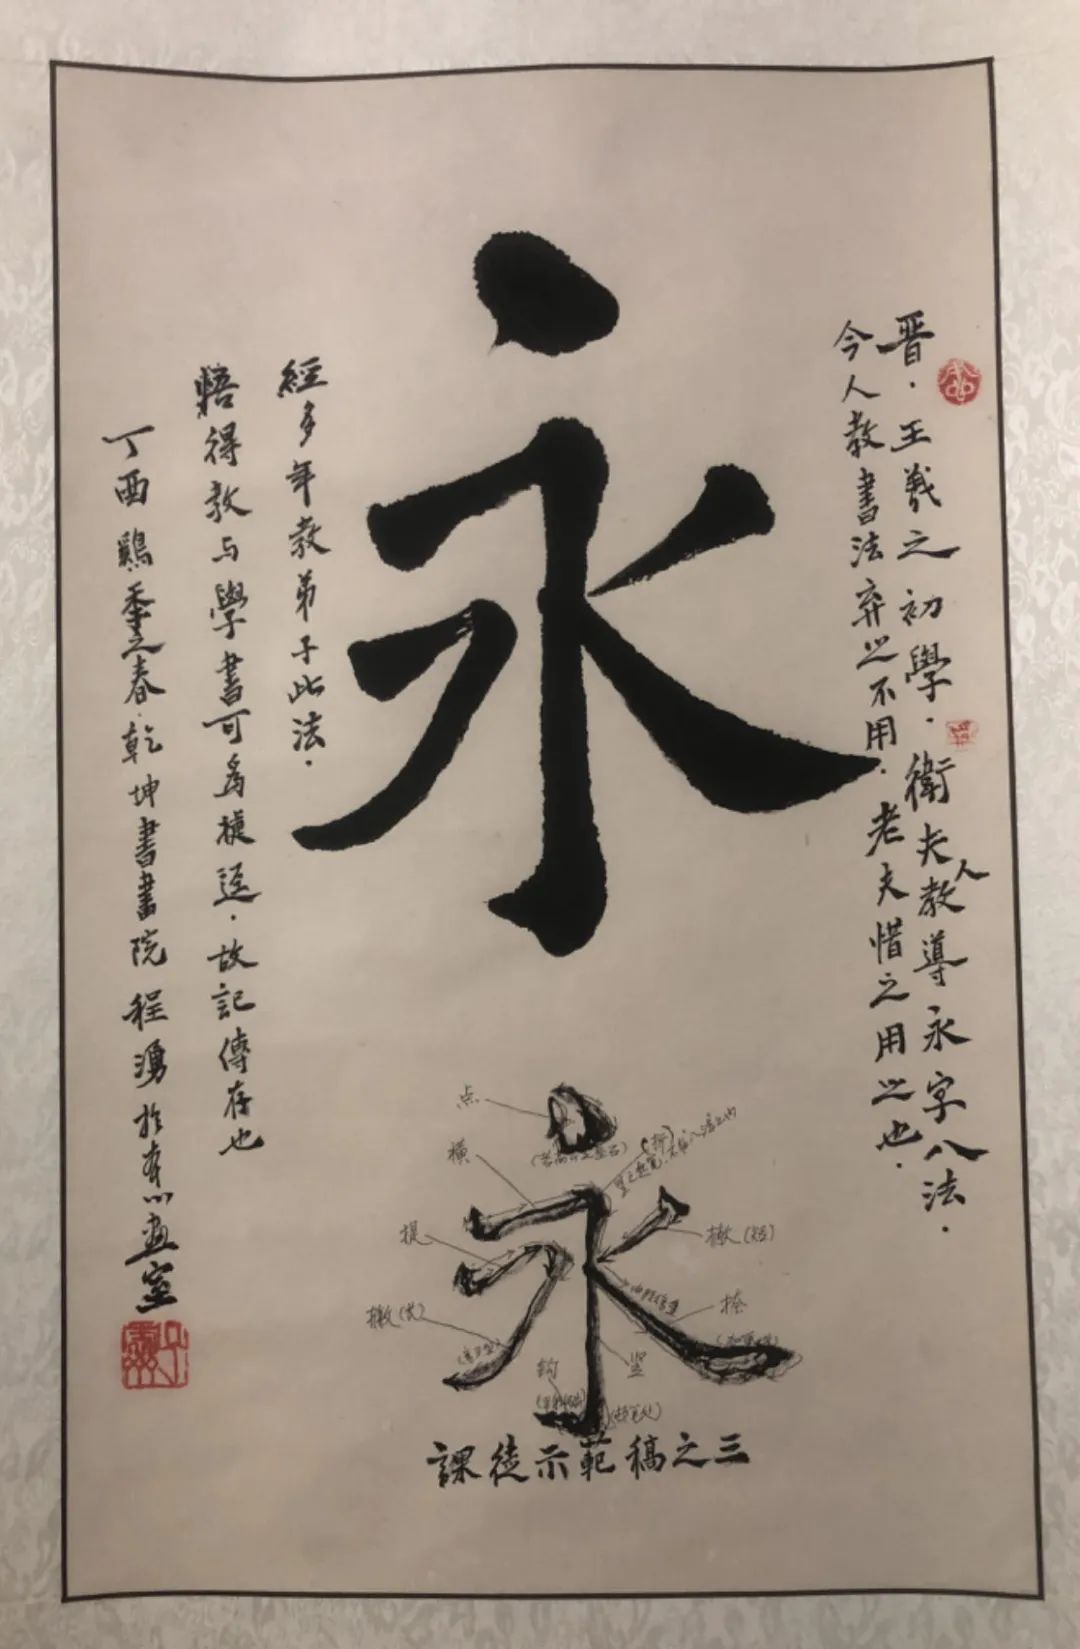 永
晋．王羲之初學．衛夫人教導永字八法．
今人教書法弃之不用．老夫惜之用之也．
經多年教弟子此法．
悟得教与學書可為捷逕．故記傳存也
丁酉鷄季之春．乾坤書畫院程湧於有心画室
点
横
提
撇(长)
钩
竖
捺
撇(短)
(折)
課徒示範稿之三